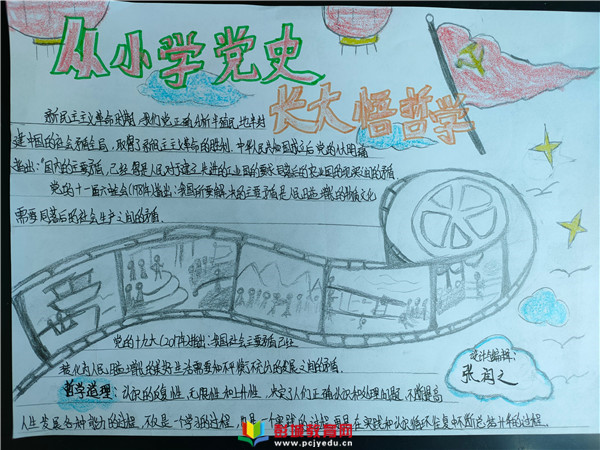 从小学党史
长大悟哲学
新民主主义革命时期，我们党正确分析半殖民地半封
建中国的社会矛盾全局，取得了新民主主义革命的胜利，中华人民共和国成立后党的八大明确
指出："国内的主要矛盾，已经是人民对于建立先进的工业国的要求同落后的农业国的现实之间的矛盾
党的十一届六中全会(1981年)指出：我国所要解决的主要矛盾是人民日益增长的物质文化
需要同落后的社会生产之间的矛盾.
党的十九大(2017年)指出：我国社会主要矛盾已经
转化为人民日益增长的美好生活需要和不平衡不充分的发展之间的矛盾.
哲学道理：认识的反复性，无限性和上升性，决定了人们正确认识和处理问题，不断提高
人生发展各种能力的过程，不仅是一个学习的过程，更是一个实践的过程
在实践和认识循环往复中不断总结升华的过程.
设计编辑：
张润之
彭城教育网
www.pcjyedu.cn